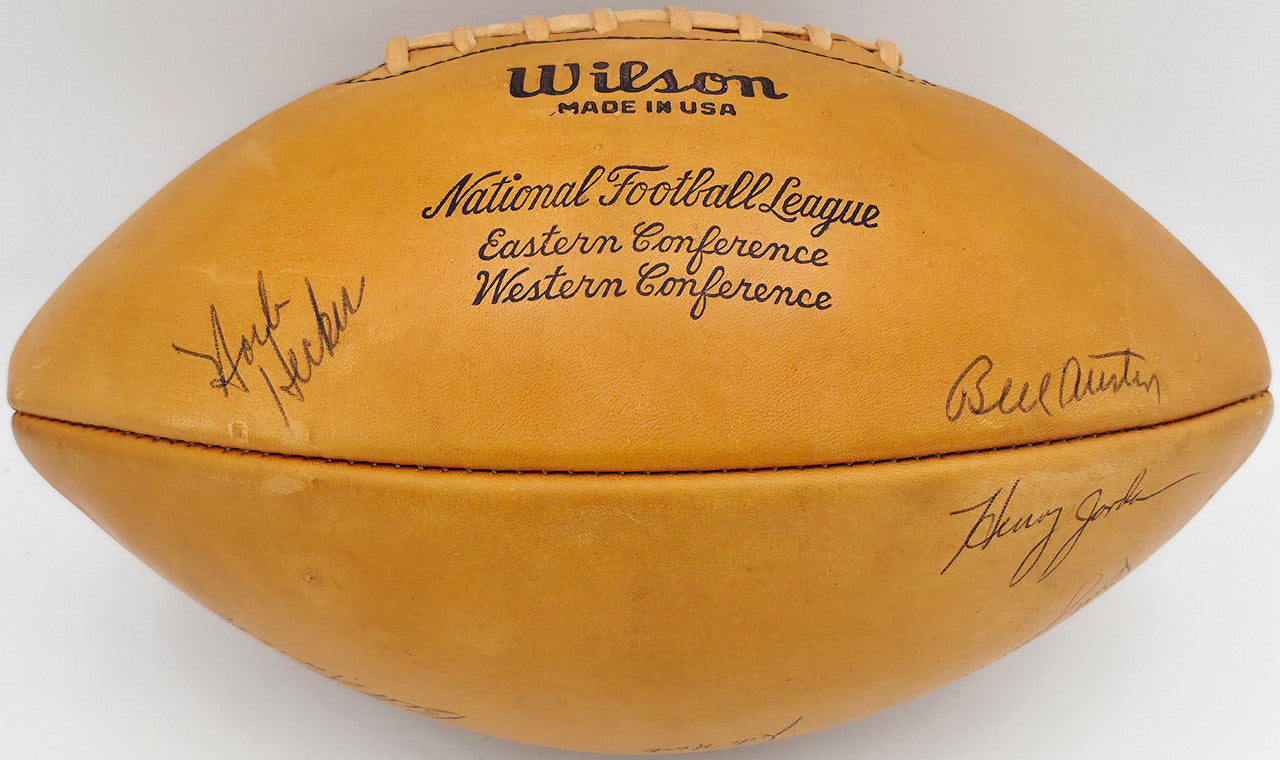 Wilson
MADE IN USA
National Football League
Eastern Conference
Western Conference
Horb
Hecker
Bill Austin
Henry Jordan